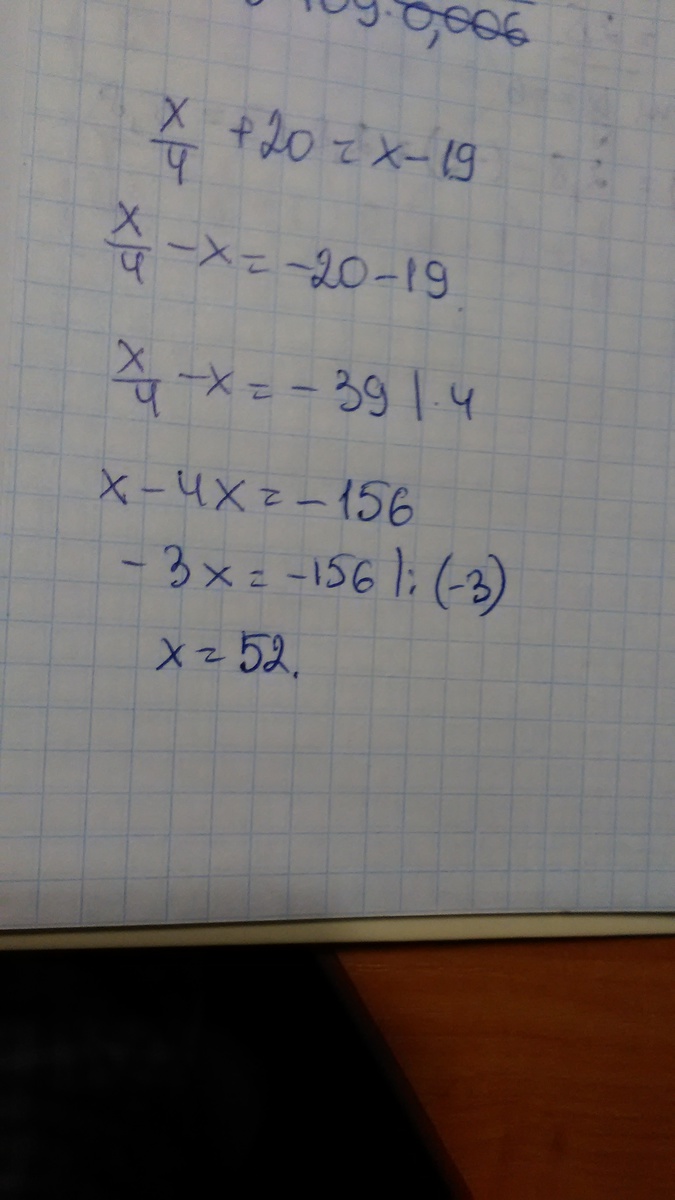 0,006
x/4 + 20 = x - 19
x/4 - x = -20 - 19
x/4 - x = - 39 | · 4
x - 4x = - 156
- 3x = -156 | : (-3)
x = 52.